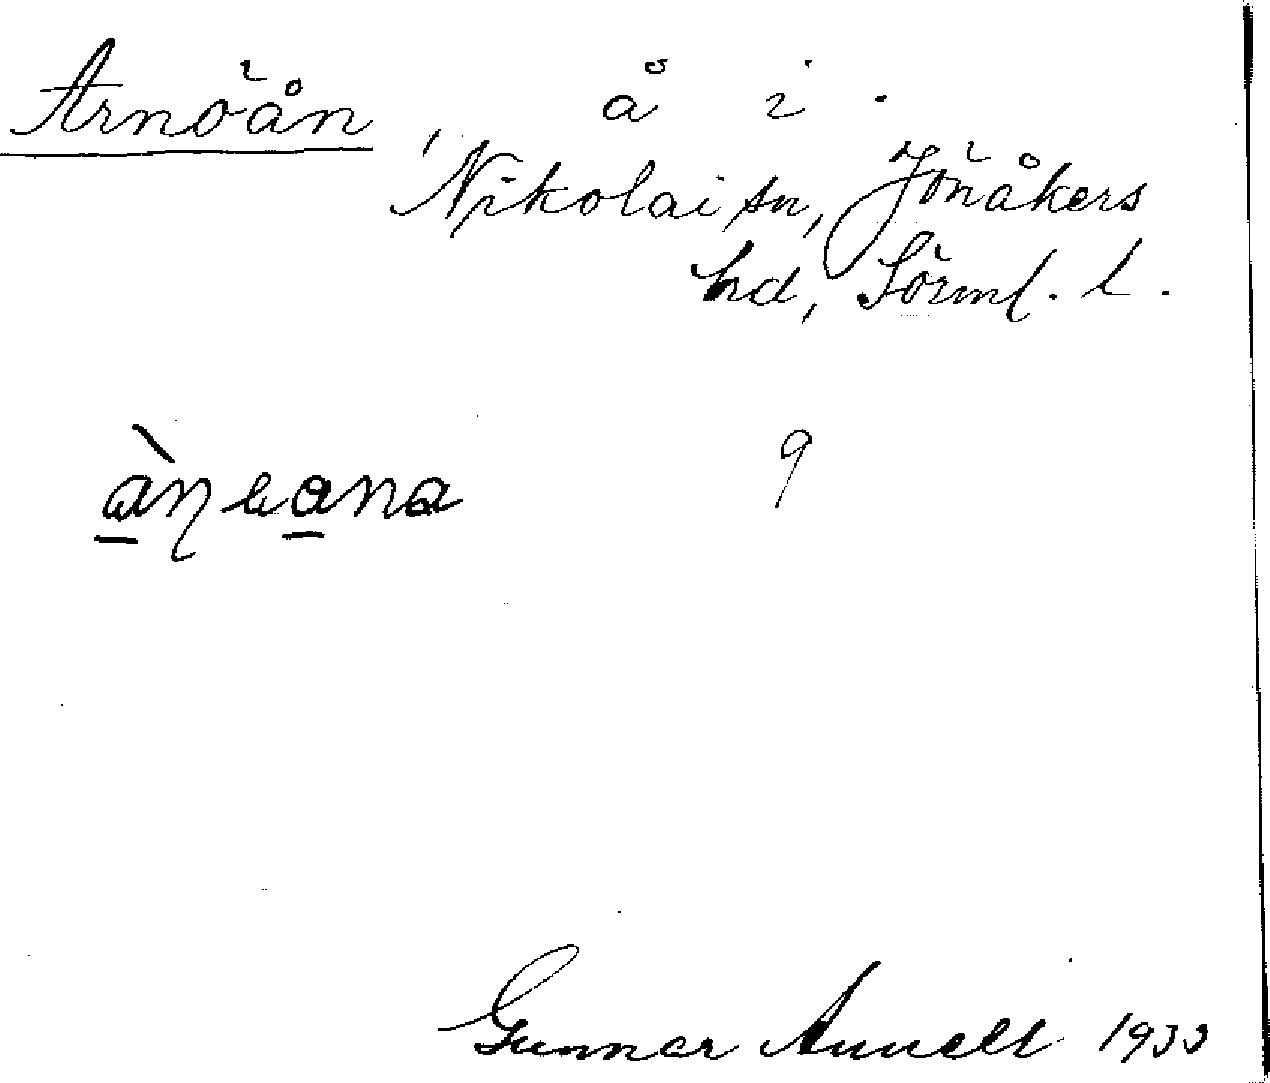 Arnöån, å i
Nikolai sn, Jönåkers
hd, Sörml. l.
9
Gunnar Annell 1933